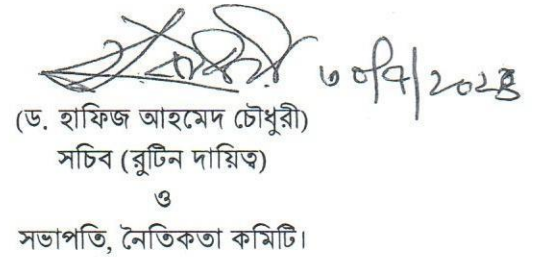 ৩০/৭/২০২৪
(ড. হাফিজ আহমেদ চৌধুরী)
সচিব (রুটিন দায়িত্ব)
ও
সভাপতি, নৈতিকতা কমিটি।